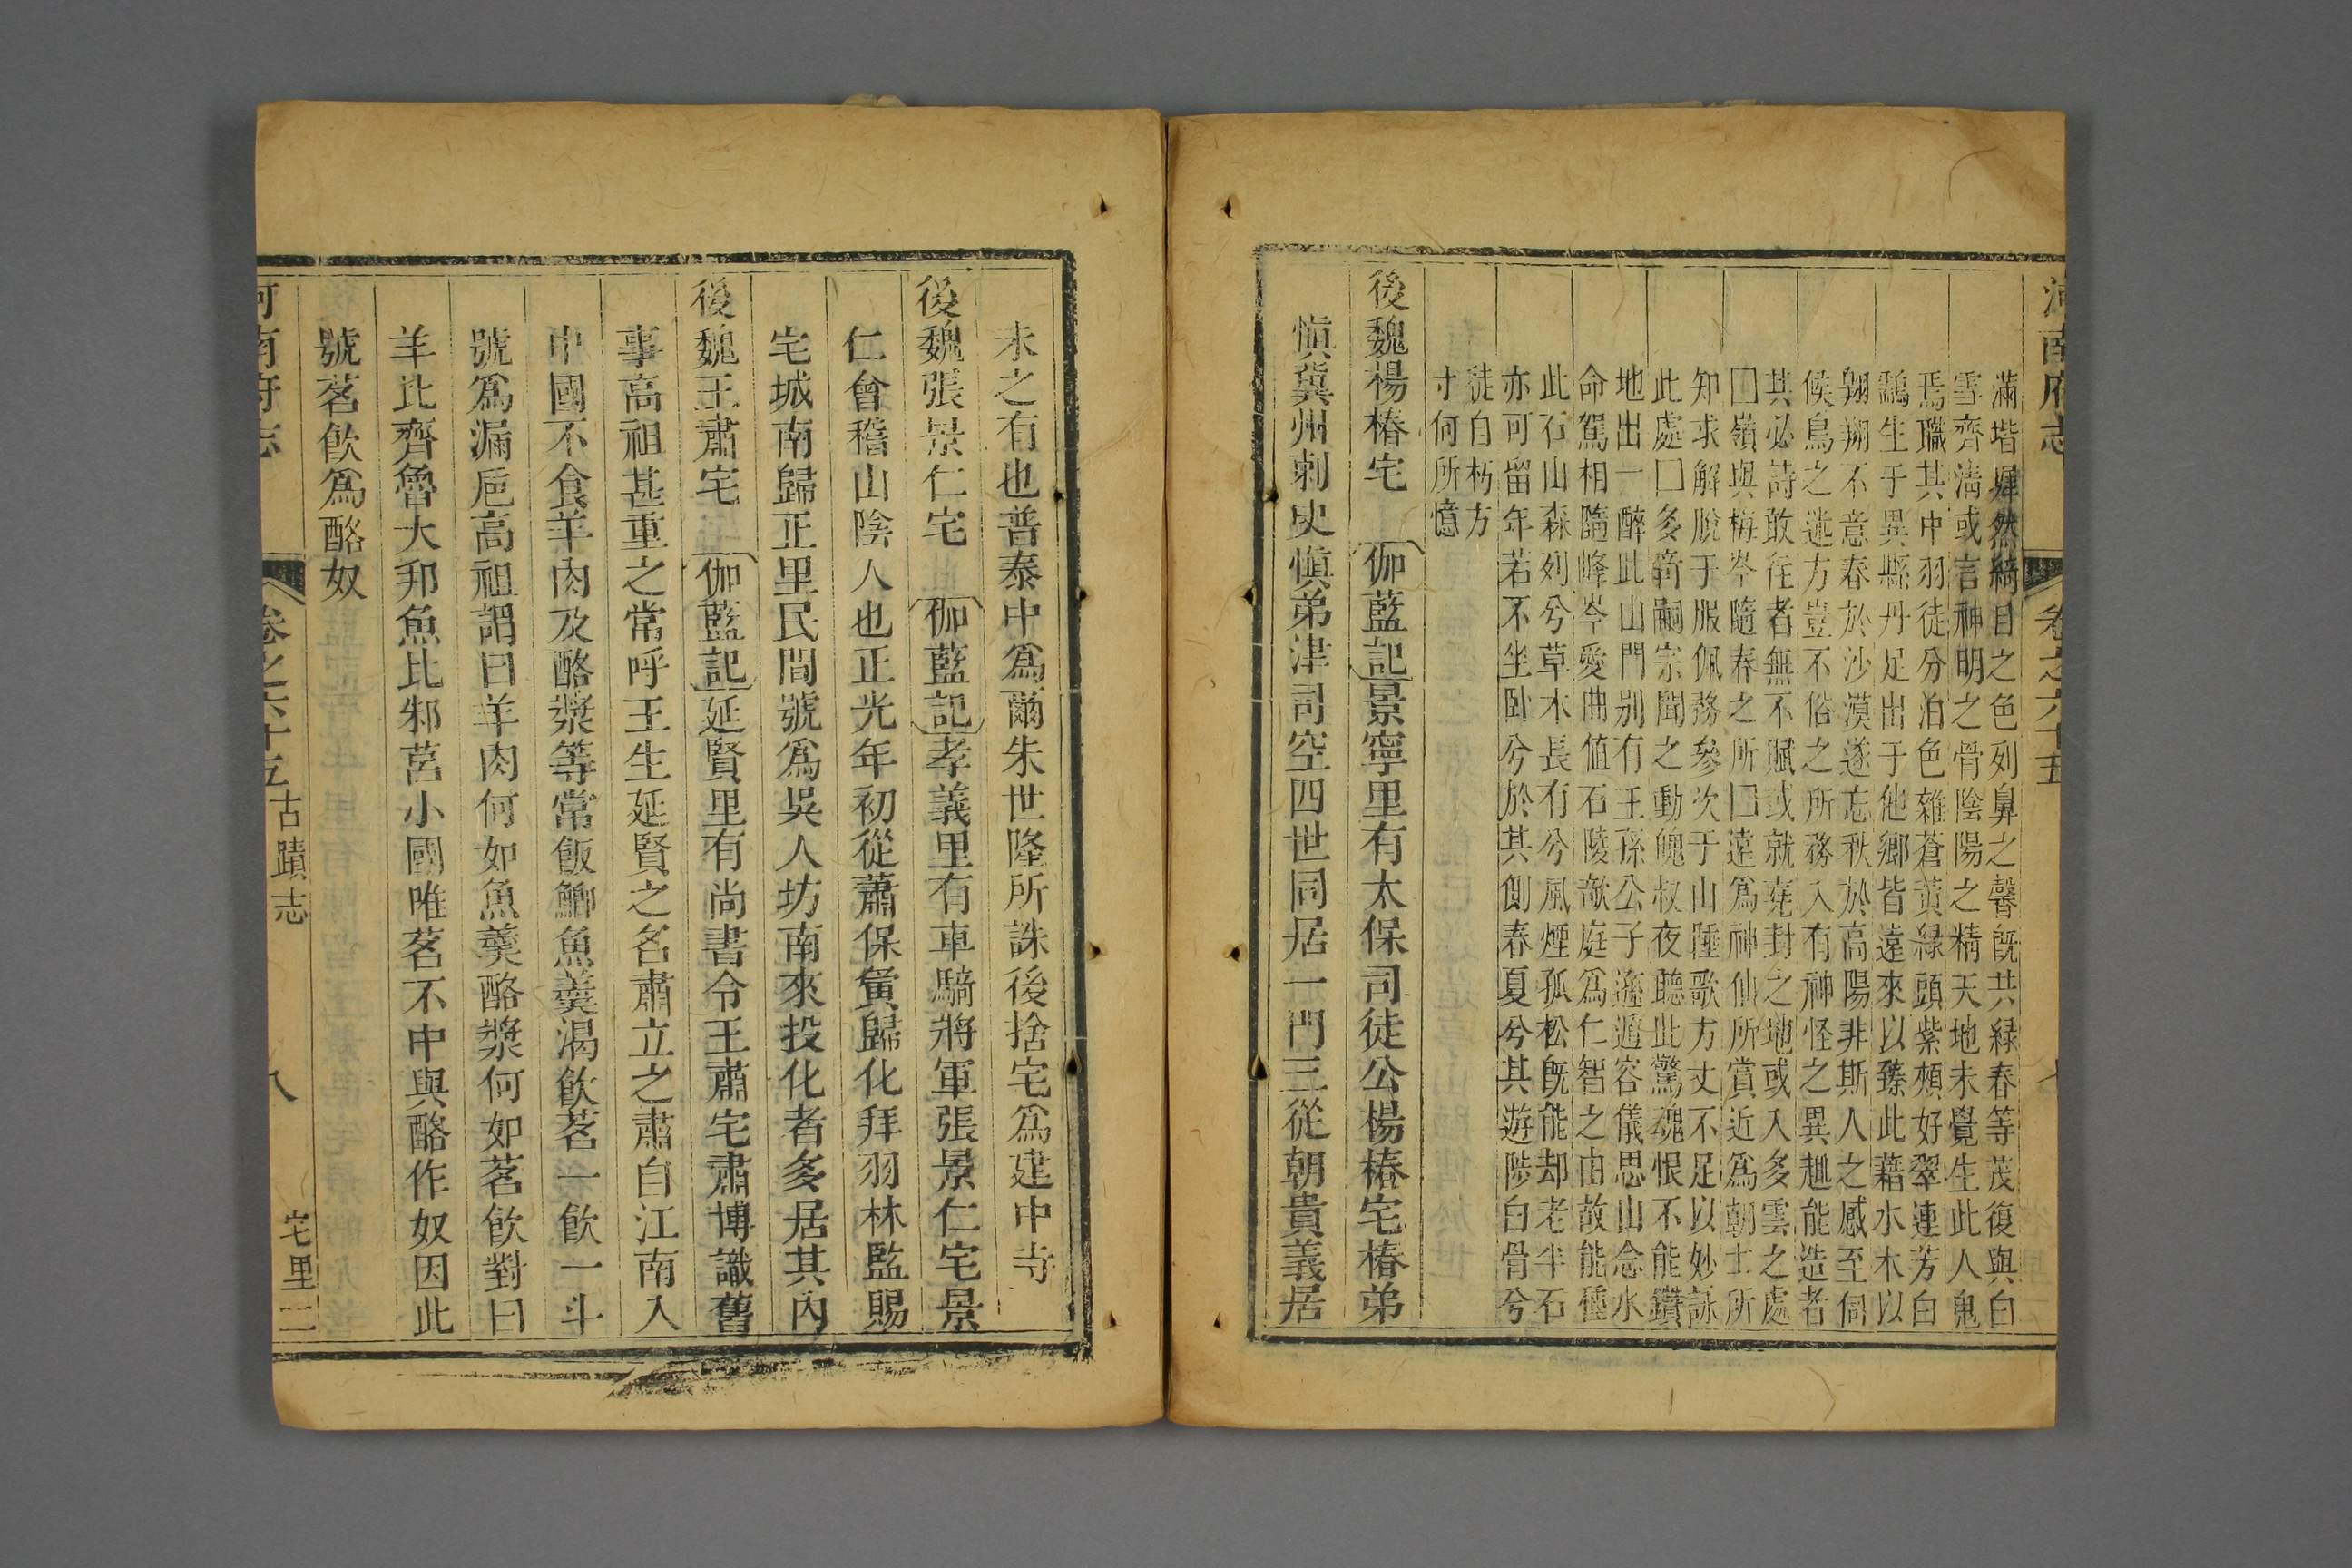 河南府志 卷之六十五
滿堦墀然綺目之色列鼻之馨既共緑春等茂復與白
雪齊清或言神明之骨陰陽之精天地未覺生此人鬼
焉職其中羽徒分泊色雜蒼黄緑頭紫頰好翠連芳白
鷁生于異縣丹足出于他鄉皆遠來以臻此藉水木以
翔翔不意春於沙漠遂忘秋於高陽非斯人之感至伺
候鳥之迷方豈不俗之所務入有神怪之異趣能造者
其必詩敢往者無不賦或就堯封之地或入多雲之處
囗嶺與梅岑隨春之所囗遠爲神仙所賞近爲朝士所
知求解脫于服佩務參次于山陲歌方丈不足以妙詠
此處囗多奇嗣宗聞之動魄叔夜聽此驚魂恨不能鑽
地出一醉此山門别有王孫公子遜遁容儀思山念水
命駕相隨峰岑愛曲值石陵欹庭爲仁智之由故能種
此石山森列兮草木長有兮風煙孤松既能却老半石
亦可留年若不坐卧兮於其側春夏兮其遊陟白骨兮
徒自朽方
寸何所憶
後魏楊椿宅 伽藍記景寧里有太保司徒公楊椿宅椿弟
愼冀州刺史愼弟津司空四世同居一門三從朝貴義居
未之有也普泰中爲爾朱世隆所誅後捨宅爲建中寺
後魏張景仁宅 伽藍記孝義里有車騎將軍張景仁宅景
仁會稽山陰人也正光年初從蕭保夤歸化拜羽林監賜
宅城南歸正里民間號爲吳人坊南來投化者多居其內
後魏王肅宅 伽藍記延賢里有尚書令王肅宅肅博識舊
事高祖甚重之常呼王生延賢之名肅立之肅自江南入
中國不食羊肉及酪漿等常飯鯽魚羹渴飲茗一飲一斗
號爲漏卮高祖謂曰羊肉何如魚羹酪漿何如茗飲對曰
羊比齊魯大邦魚比邾莒小國唯茗不中與酪作奴因此
號茗飲爲酪奴
河南府志 卷之六十五 古蹟志 八 宅里二